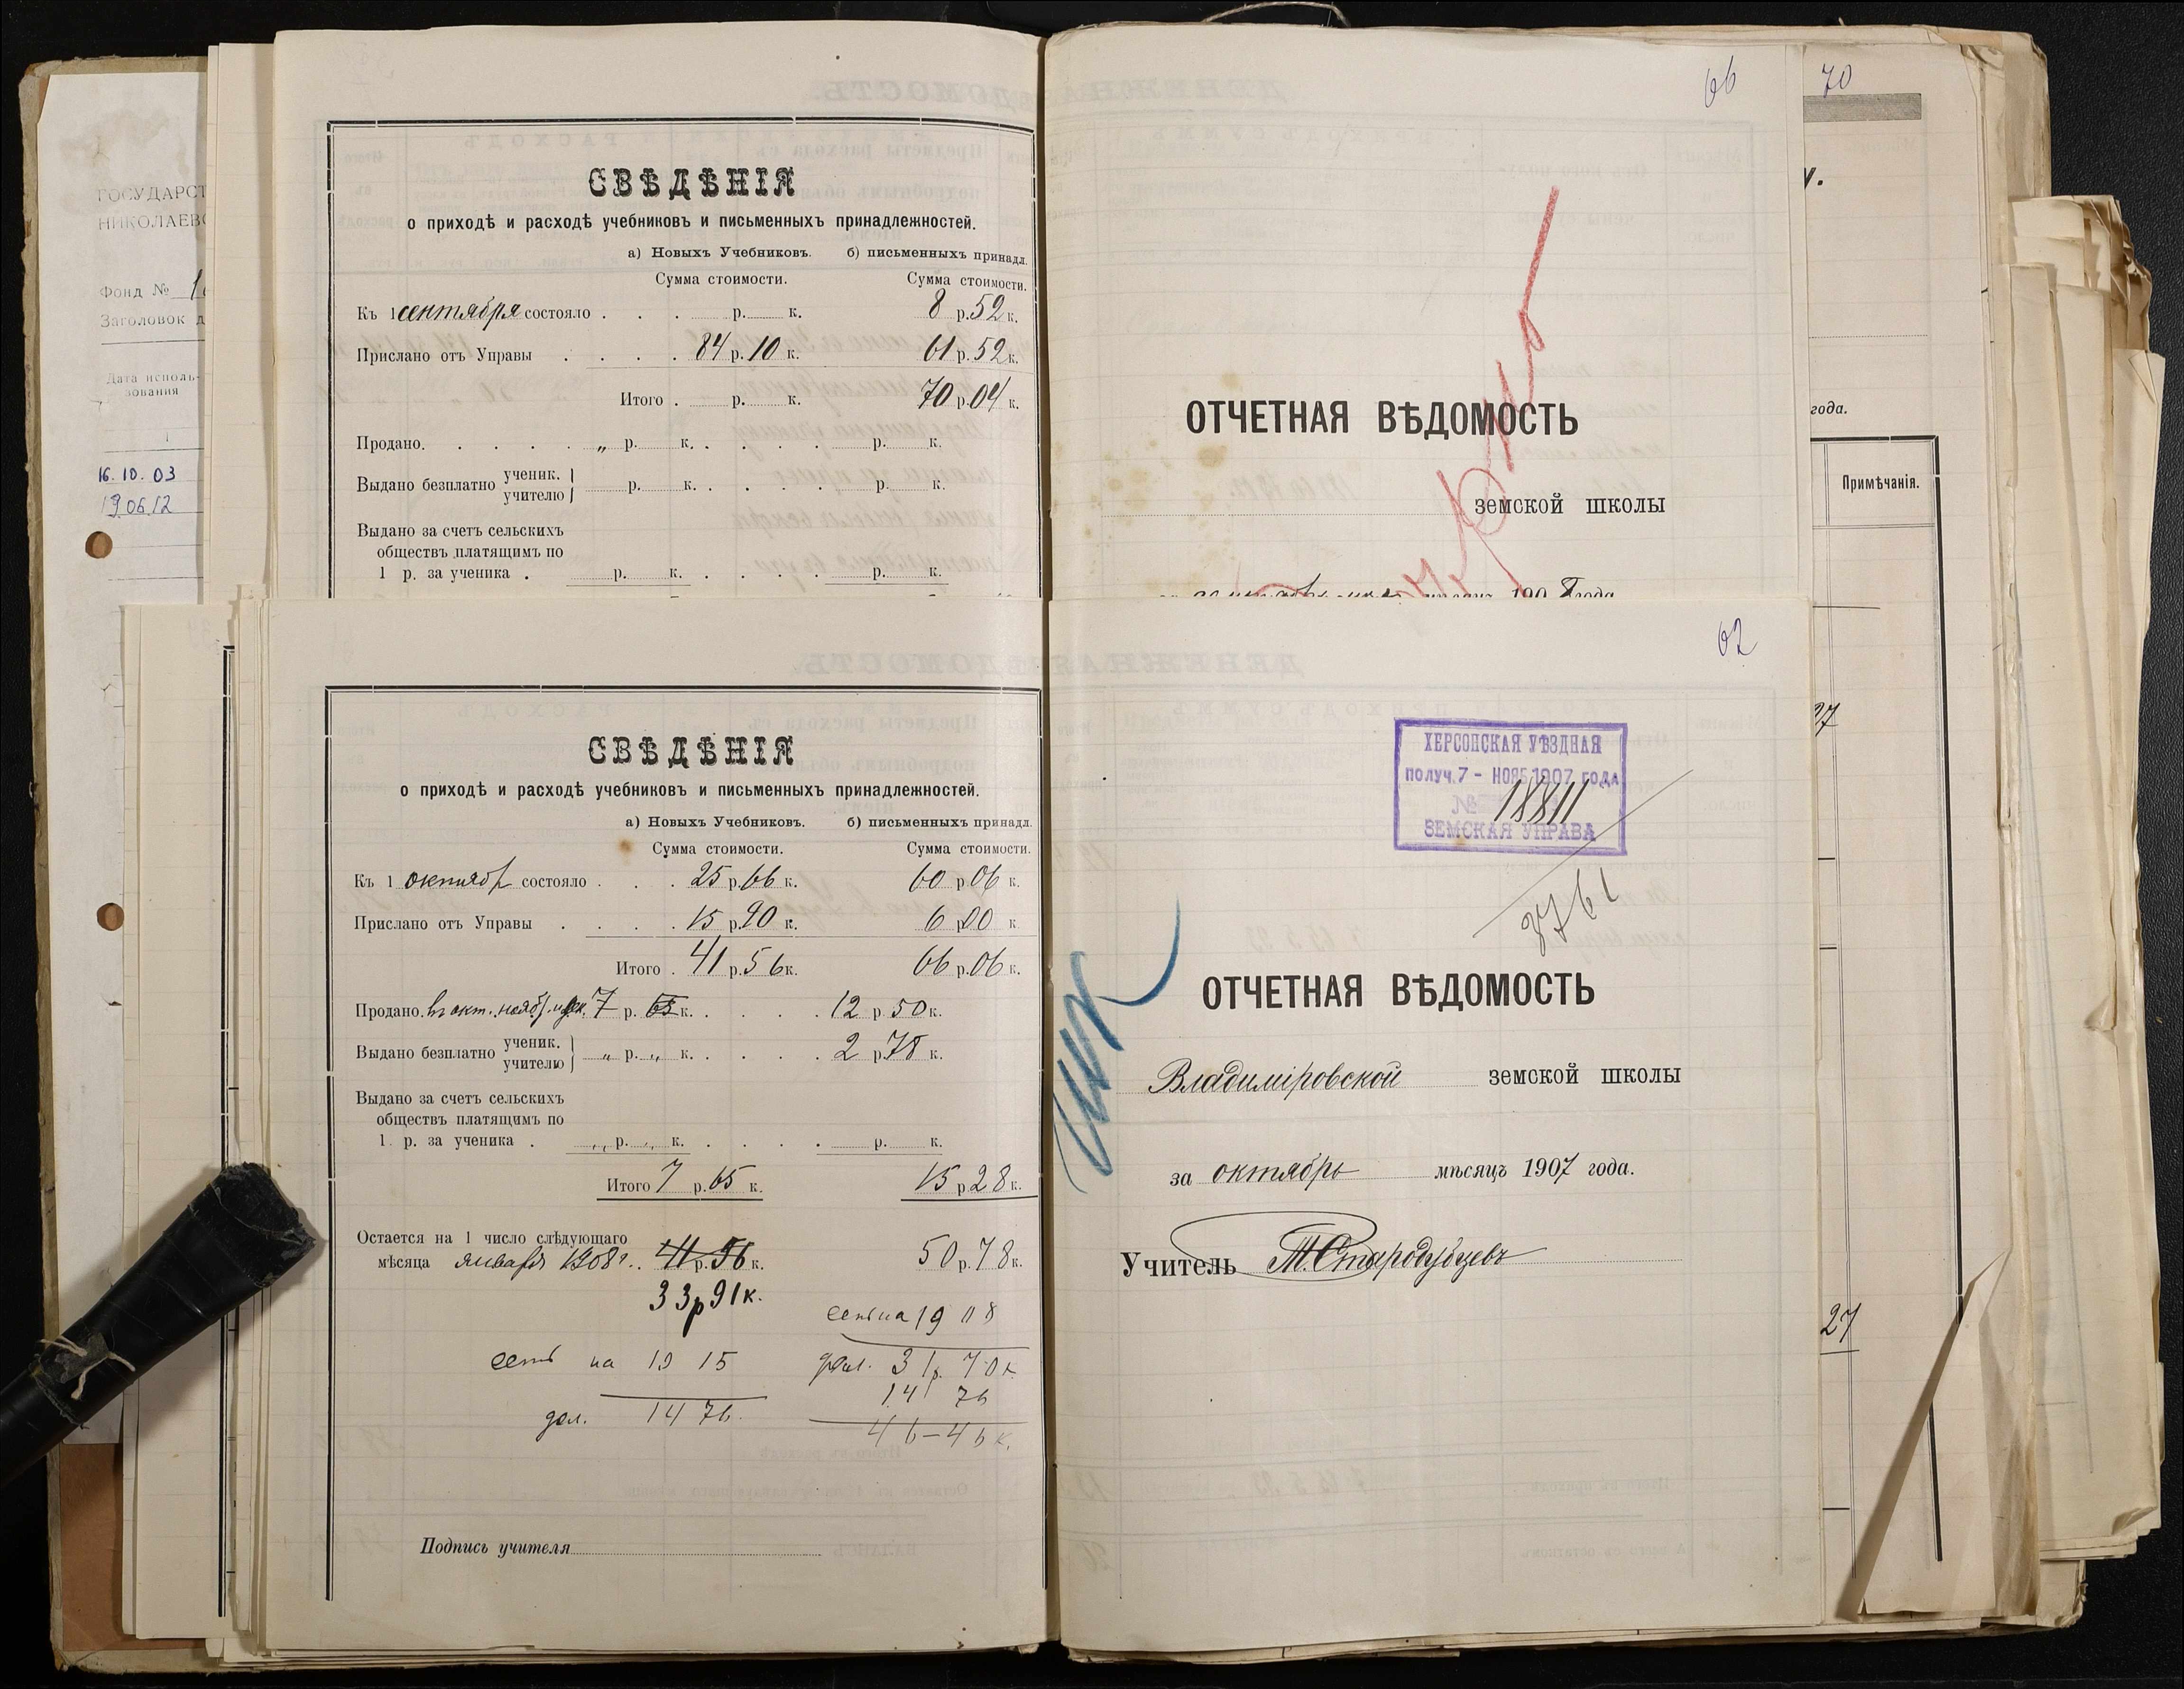 ГОСУДАРСТ
НИКОЛАЕВС
Фонд № 1
Заголовок д
Дата исполь-
зования
16.10.03
19.06.12
СВѢДѢНІЯ
о приходѣ и расходѣ учебниковъ и письменныхъ принадлежностей.
а) Новыхъ Учебниковъ. б) письменныхъ принадл.
Сумма стоимости. Сумма стоимости.
Къ 1 сентября состояло . . . р. к. 8 р. 52 к.
Прислано отъ Управы . . . . 84 р. 10 к. 61 р. 52 к.
Итого . р. к. 70 р. 04 к.
Продано. . . . . „ р. к. . . . . р. к.
Выдано безплатно ученик. учителю р. к. . . . . р. к.
Выдано за счетъ сельскихъ
обществъ платящимъ по
1 р. за ученика . р. к. . . . . р. к.
66
ОТЧЕТНАЯ ВѢДОМОСТЬ
земской школы
мѣсяцъ 1908 года
70
года.
Примѣчанія.
27
27
СВѢДѢНІЯ
о приходѣ и расходѣ учебниковъ и письменныхъ принадлежностей.
а) Новыхъ Учебниковъ. б) письменныхъ принадл.
Сумма стоимости. Сумма стоимости.
Къ 1 октябр состояло . . . 25 р. 66 к. 60 р. 06 к.
Прислано отъ Управы . . . . 15 р. 90 к. 6 р. 00 к.
Итого . 41 р. 56 к. 66 р. 06 к.
Продано. въ окт. нояб. и дек. 7 р. 65 к. . . . . 12 р. 50 к.
Выдано безплатно ученик. учителю „ р. „ к. . . . . 2 р. 78 к.
Выдано за счетъ сельскихъ
обществъ платящимъ по
1 р. за ученика . „ р. „ к. . . . . р. к.
Итого 7 р. 65 к. 15 р. 28 к.
Остается на 1 число слѣдующаго
мѣсяца января 1908 г. . 41 р. 56 к. 50 р. 78 к.
33 р 91 к.
есть на 19 08
есть на 19 15 дол. 31 р. 70 к.
14 76
дол. 14 76. 46 – 46 к.
Подпись учителя
62
ХЕРСОНСКАЯ УѢЗДНАЯ
ПОЛУЧ. 7 - НОЯБ 1907 ГОДА
№ 18811
ЗЕМСКАЯ УПРАВА
8761
ОТЧЕТНАЯ ВѢДОМОСТЬ
Владиміровской земской школы
за октябрь мѣсяцъ 1907 года.
Учитель Т. Стародубцевъ